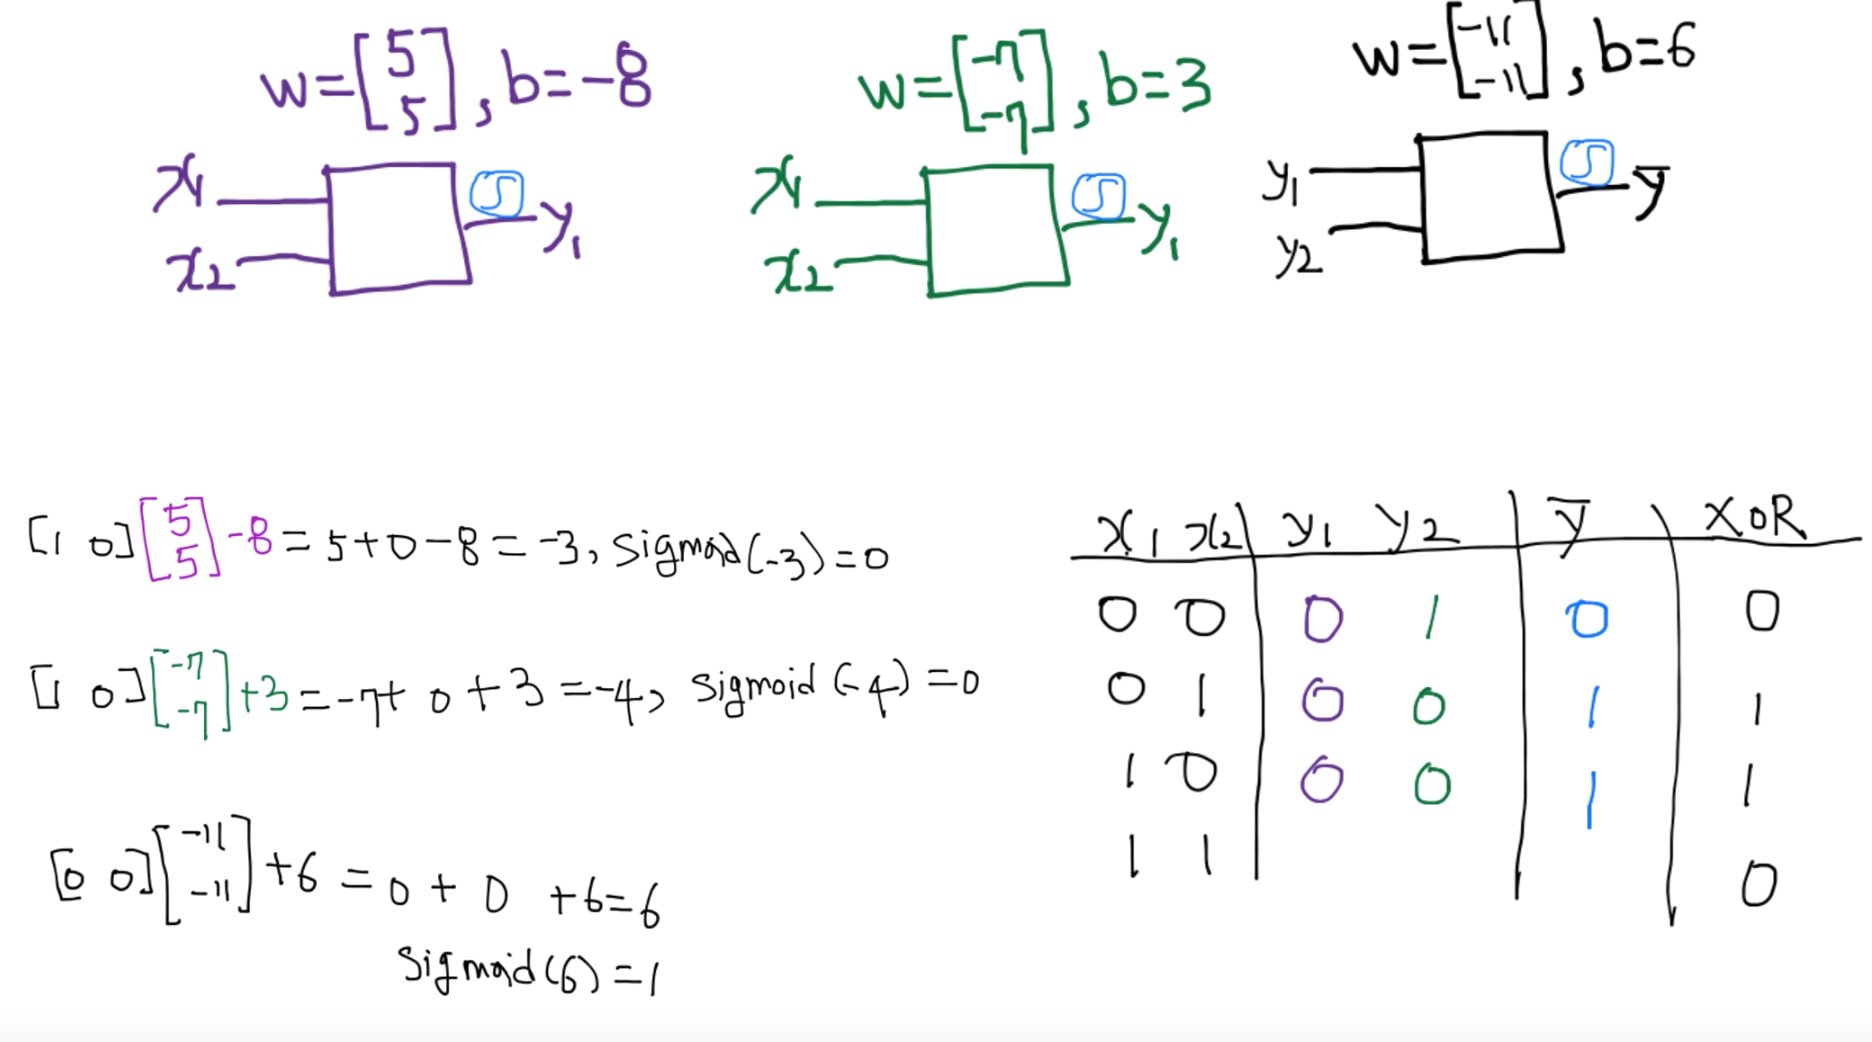 w=[5 5], b=-8
w=[-7 -7], b=3
w=[-11 -11], b=6
x1
x2
S
y1
x1
x2
S
y1
y1
y2
S
ȳ
[1 0][5 5]-8=5+0-8=-3, sigmoid(-3)=0
[1 0][-7 -7]+3=-7+0+3=-4, sigmoid(-4)=0
[0 0][-11 -11]+6=0+0+6=6
sigmoid(6)=1
x1 x2 y1 y2 ȳ XOR
0 0 0 1 0 0
0 1 0 0 1 1
1 0 0 0 1 1
1 1 0